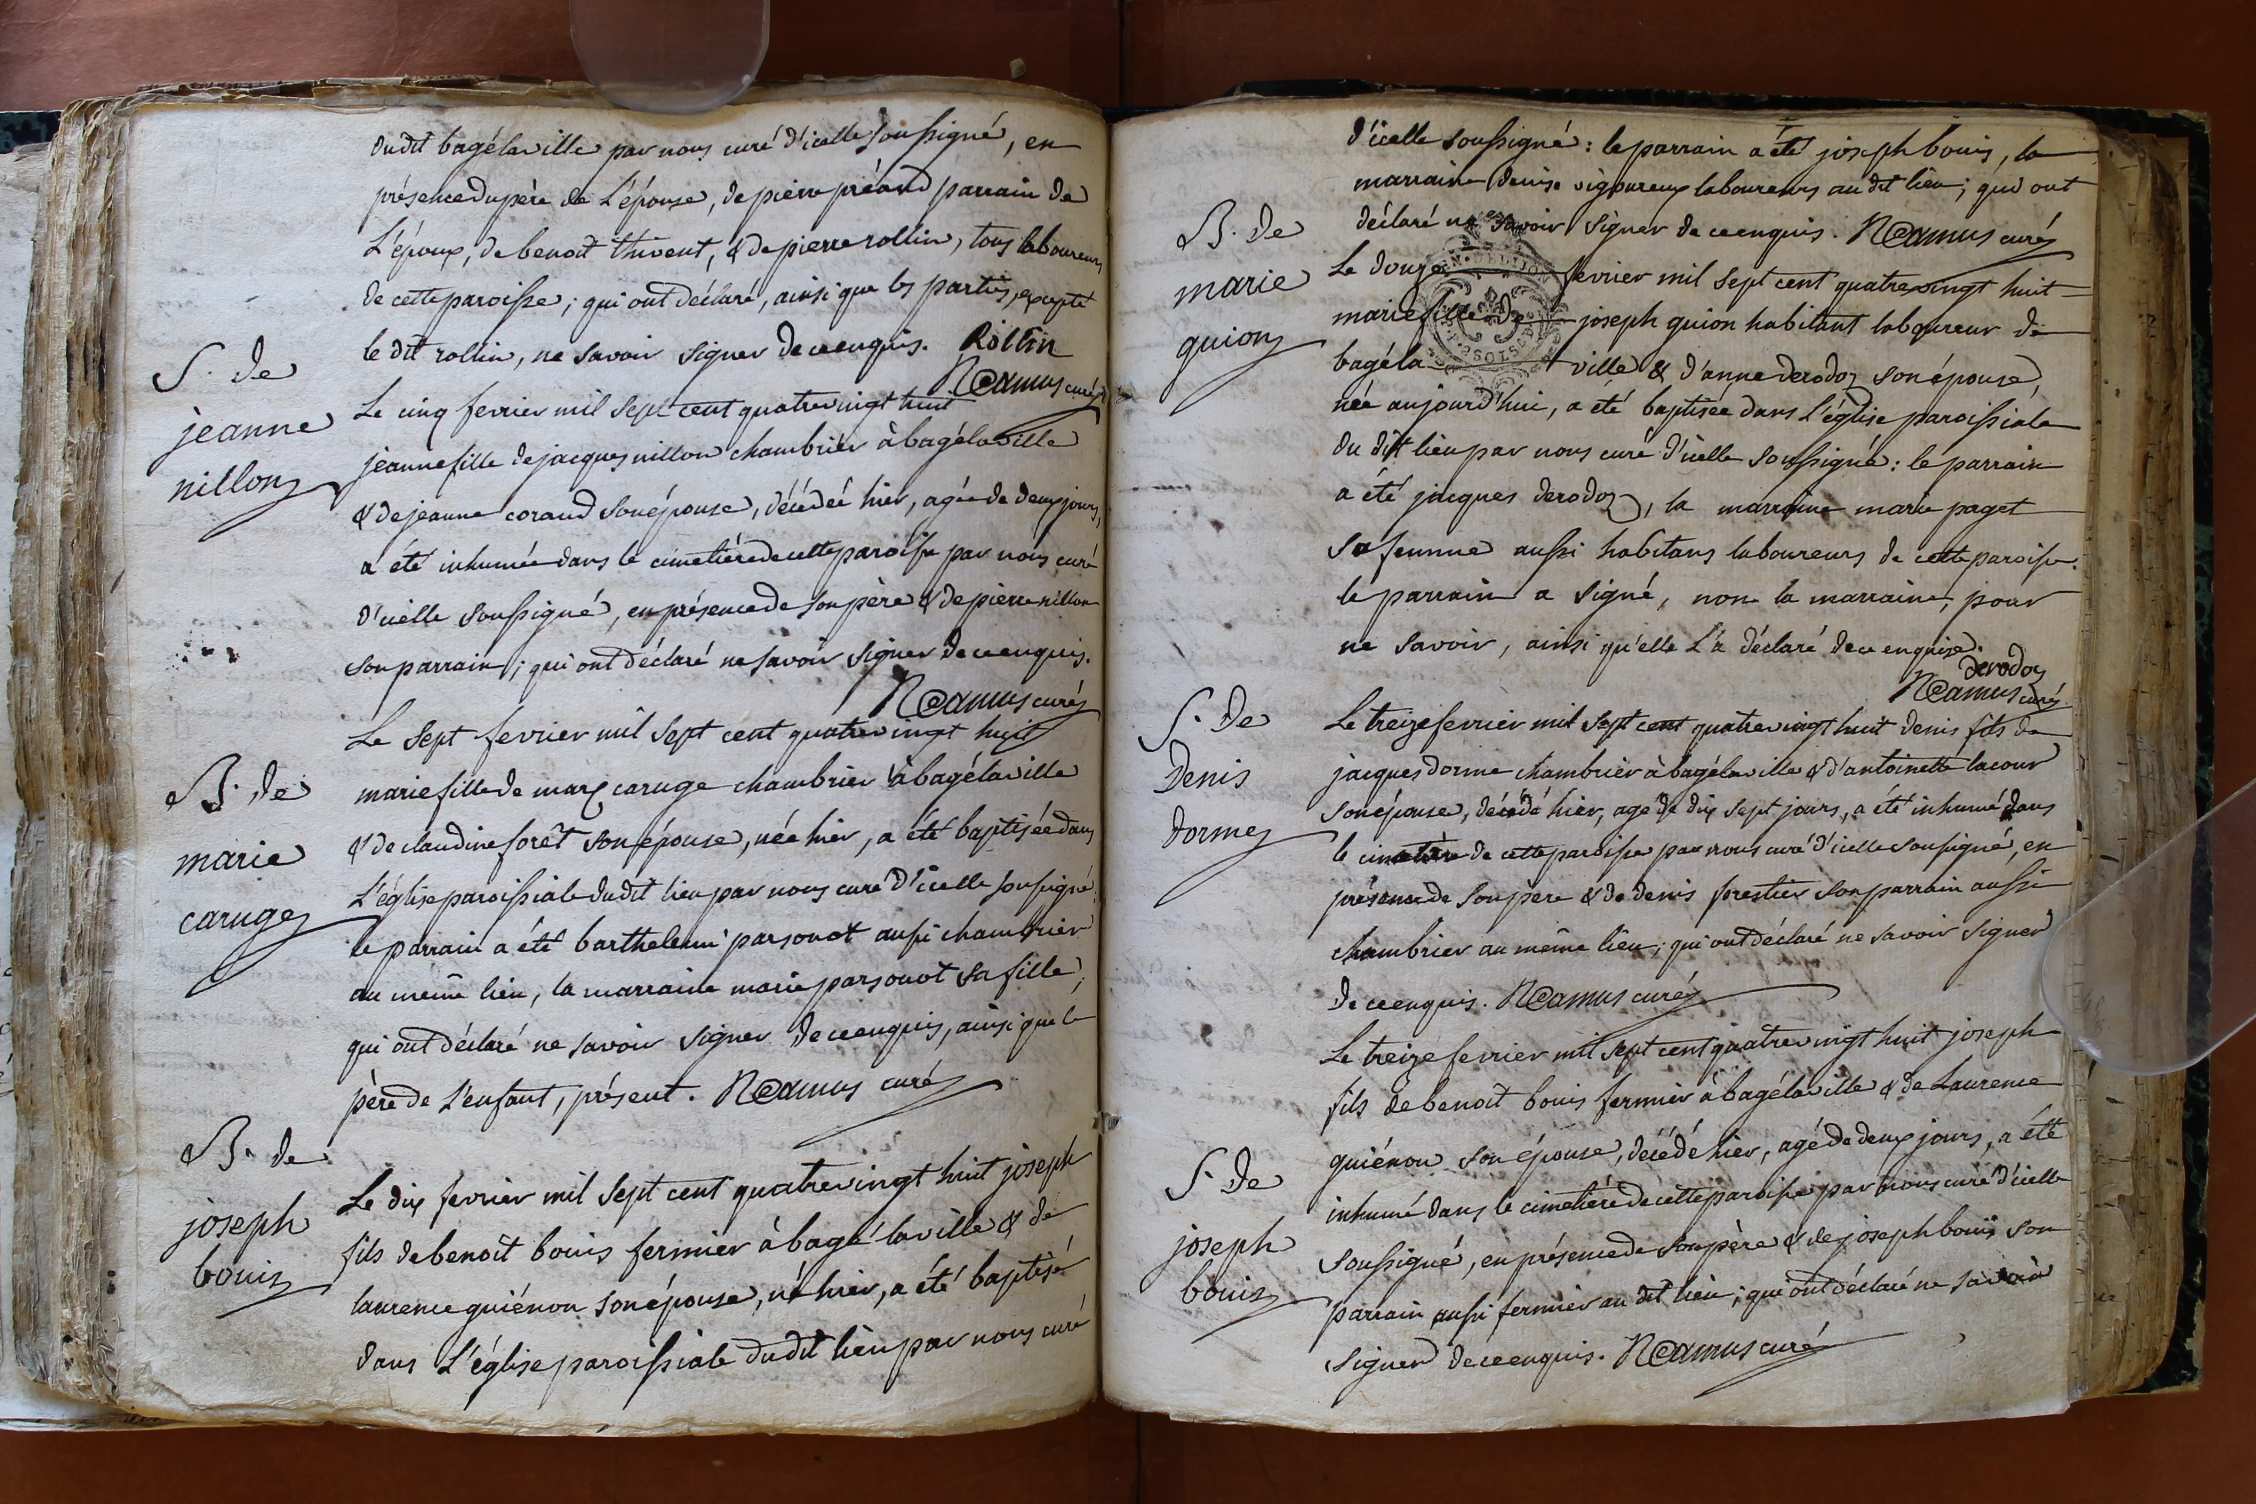 dudit bagélaville par nous curé d'icelle soussigné, en
présence du père de L'épouse, de pierre préaud parrain de
L'époux, de benoit thivent, & de pierre rollin, tous laboureurs
de cette paroisse; qui ont déclaré, ainsi que les parties, excepté
le dit rollin, ne savoir signer de ce enquis. Rollin
camus curé
S. de
jeanne
nillon
Le cinq fevrier mil sept cent quatre vingt huit
jeanne fille de jacques nillon chambrier à bagélaville
& de jeanne coraud son épouse, décédée hier, agée de deux jours,
a été inhumée dans le cimetière de cette paroisse par nous curé
d'icelle soussigné, en présence de son père & de pierre nillon
son parrain; qui ont déclaré ne savoir signer de ce enquis.
camus curé
B. de
marie
caruge
Le sept fevrier mil sept cent quatre vingt huit
marie fille de marx caruge chambrier à bagélaville
& de claudine forêt son épouse, née hier, a été baptisée dans
L'église paroissiale dudit lieu par nous curé d'icelle soussigné:
le parrain a été barthelemi parsonot aussi chambrier
au même lieu, la marraine marie parsonot sa fille;
qui ont déclaré ne savoir signer de ce enquis, ainsi que le
père de L'enfant, présent. camus curé
B. de
joseph
bouis
Le dix fevrier mil sept cent quatre vingt huit joseph
fils de benoit bouis fermier à bagélaville & de
laurence guiénon son épouse, né hier, a été baptisé
dans L'église paroissiale dudit lieu par nous curé
d'icelle soussigné: le parrain a été joseph bouis, la
marraine denise vigoureux laboureurs au dit lieu; qui ont
déclaré ne savoir signer de ce enquis. camus curé
B. de
marie
guion
Le douze fevrier mil sept cent quatre vingt huit
marie fille de joseph guion habitant laboureur de
bagéla ville & d'anne derodoz son épouse,
née aujourd'hui, a été baptisée dans L'église paroissiale
du dit lieu par nous curé d'icelle soussigné: le parrain
a été jacques derodoz, la marraine marie paget
sa femme aussi habitans laboureurs de cette paroisse.
le parrain a signé, non la marraine, pour
ne savoir, ainsi qu'elle L'a déclaré de ce enquise.
derodoz
camus curé
S. de
Denis
dorme
Le treize fevrier mil sept cent quatre vingt huit denis fils de
jacques dorme chambrier à bagélaville & d'antoinette lacour
son épouse, décédé hier, agé de dix sept jours, a été inhumé dans
le cimetière de cette paroisse par nous curé d'icelle soussigné, en
présence de son père & de denis forestier son parrain aussi
chambrier au même lieu; qui ont déclaré ne savoir signer
de ce enquis. camus curé
S. de
joseph
bouis
Le treize fevrier mil sept cent quatre vingt huit joseph
fils de benoit bouis fermier à bagélaville & de Laurence
guiénon son épouse, décédé hier, agé de deux jours, a été
inhumé dans le cimetière de cette paroisse par nous curé d'icelle
soussigné, en présence de son père & de joseph bouis son
parrain aussi fermier au dit lieu; qui ont déclaré ne savoir
signer de ce enquis. camus curé